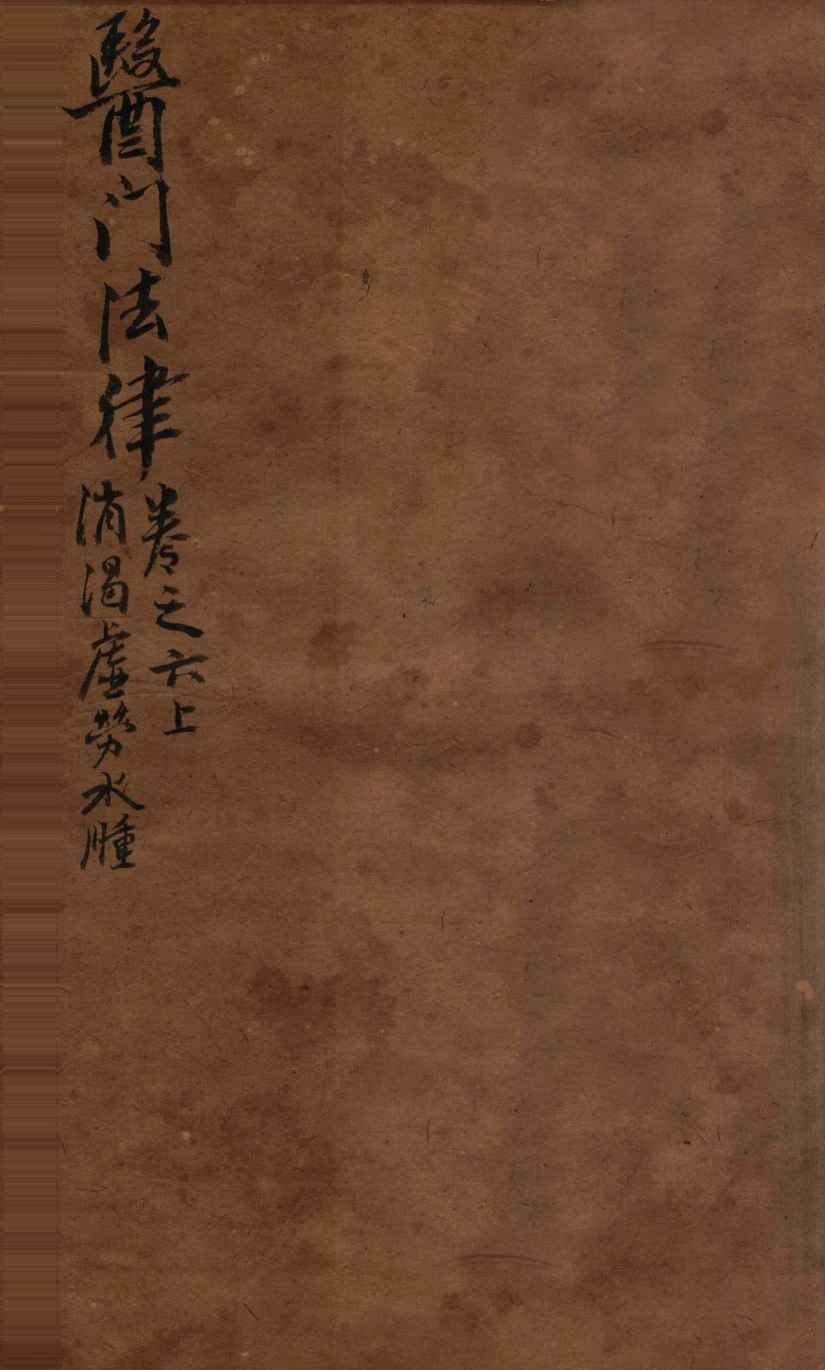 醫门法律
卷之六上
消渴虛勞水腫